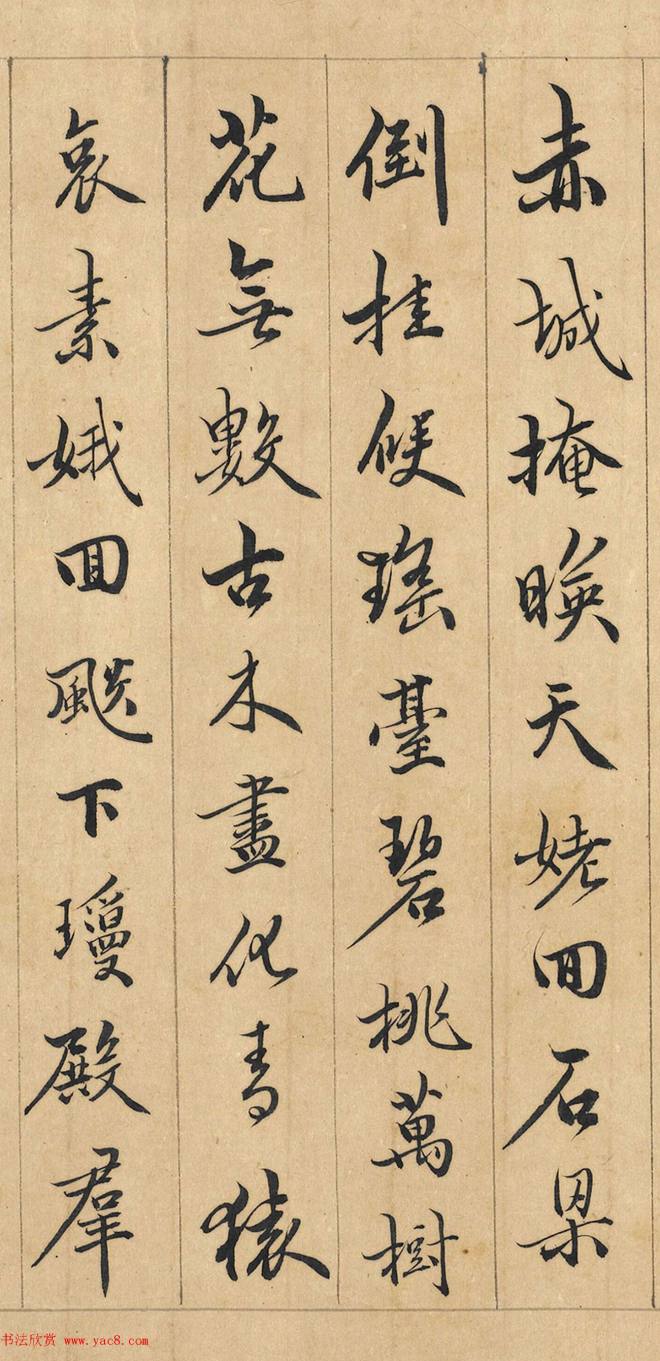 赤城掩暎天姥回石梁
倒挂候瑤臺碧桃萬樹
花無數古木盡化青猿
哀素娥回飈下瓊殿羣
书法欣赏 www.yac8.com